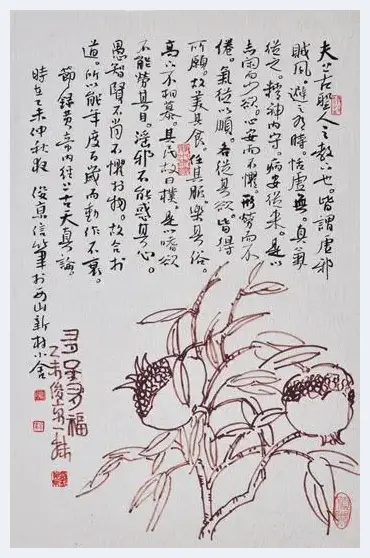 夫上古聖人之教下也皆謂虛邪
賊風。避之有時。恬虛無。真氣
從之。精神内守。病安從来。是以
志闲而少欲。心安而不懼。形勞而不
倦。氣從以順。各從其欲。皆得
所願。故美其食。任其服。樂其俗。
高下不相慕。其民故曰樸。是以嗜欲
不能勞其目。淫邪不能惑其心。
愚智賢不肖不懼於物。故合於
道。所以能年度百歲而動作不衰。
節録黄帝内经上古天真論
時在乙未仲秋 俊京信筆於西山新村小舍
多子多福
乙未俊京一